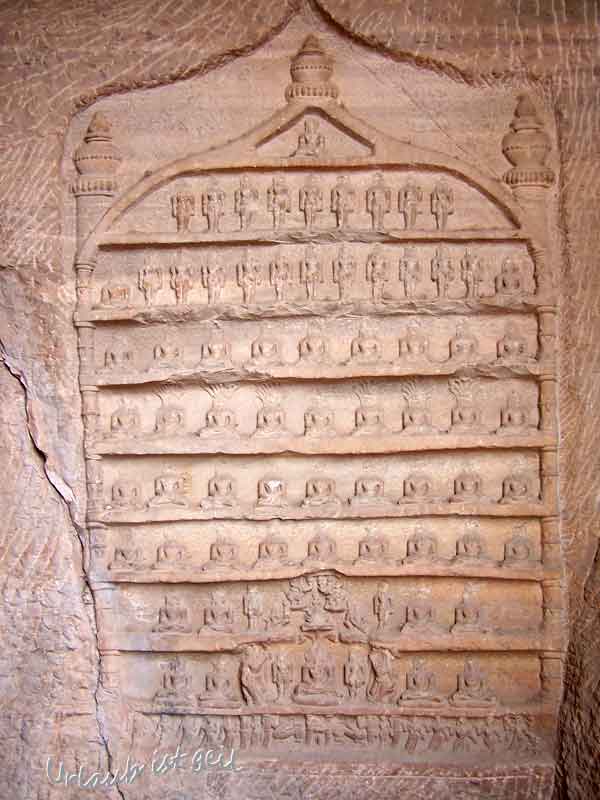 Urlaub ist geil